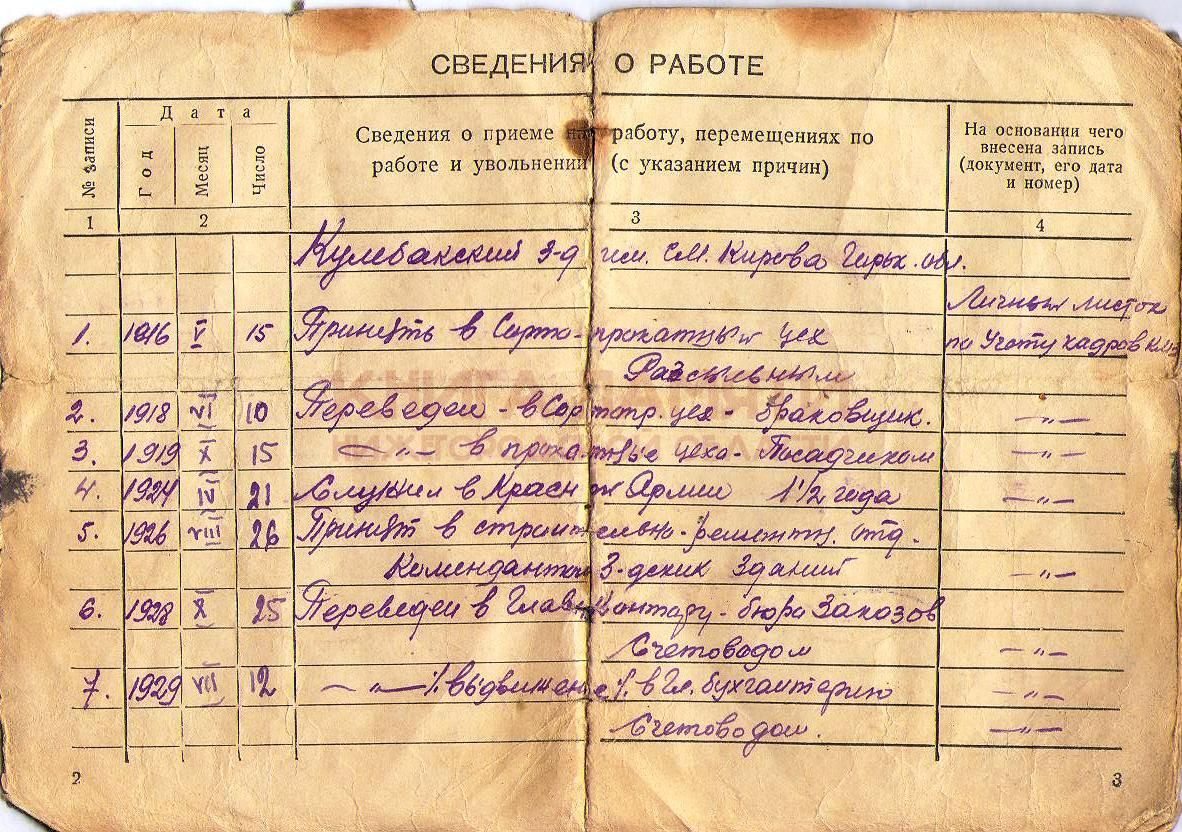 СВЕДЕНИЯ О РАБОТЕ
№ записи
Дата
Год
Месяц
Число
Сведения о приеме на работу, перемещениях по
работе и увольнении (с указанием причин)
На основании чего
внесена запись
(документ, его дата
и номер)
1 2 3 4
Кулебакский з-д им. С.М. Кирова Горьк. обл.
Личный листок
1. 1916 V 15 Принят в Сорто-прокатный цех по Учоту кадров
Рассыльным
2. 1918 VI 10 Переведен - в Сортопр. цех - браковщик. -〃-
3. 1919 X 15 -〃- в прокатные цеха - Посадчиком -〃-
4. 1924 IV 21 Служил в Красной Армии 1 1/2 года -〃-
5. 1926 VIII 26 Принят в строительно-ремонтн. отд.
Комендантом З-дских Зданий -〃-
6. 1928 X 25 Переведен в Глав. Контору - бюро Заказов
Счетоводом -〃-
7. 1929 VII 12 -〃- /выдвижение/. в Гл. бухгалтерию -〃-
Счетоводом. -〃-
2 3
КНИГА ПАМЯТИ
НИЖЕГОРОДСКОЙ ОБЛАСТИ